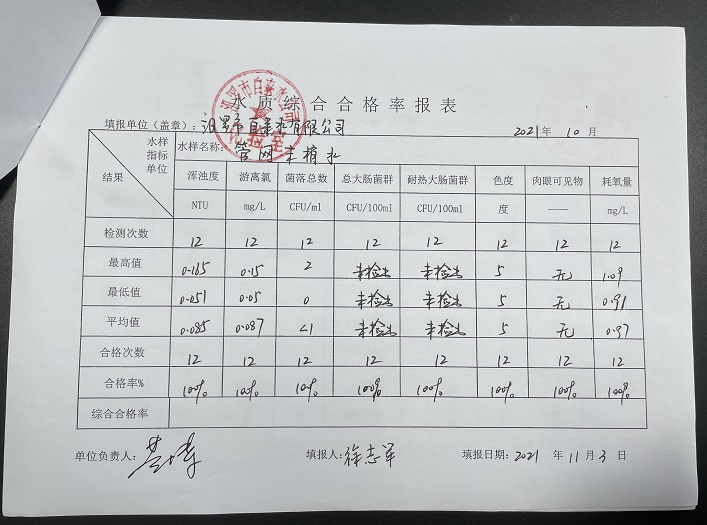 水质综合合格率报表
填报单位（盖章）：汨罗市自来水有限公司 2021年 10 月
水样 指标 单位 结果 水样名称：管网末梢水
浑浊度 游离氯 菌落总数 总大肠菌群 耐热大肠菌群 色度 肉眼可见物 耗氧量
NTU mg/L CFU/ml CFU/100ml CFU/100ml 度 —— mg/L
检测次数 12 12 12 12 12 12 12 12
最高值 0.165 0.15 2 未检出 未检出 5 无 1.09
最低值 0.051 0.05 0 未检出 未检出 5 无 0.91
平均值 0.085 0.087 <1 未检出 未检出 5 无 0.97
合格次数 12 12 12 12 12 12 12 12
合格率% 100% 100% 100% 100% 100% 100% 100% 100%
综合合格率
单位负责人： 填报人：徐志军 填报日期：2021 年 11 月 3 日